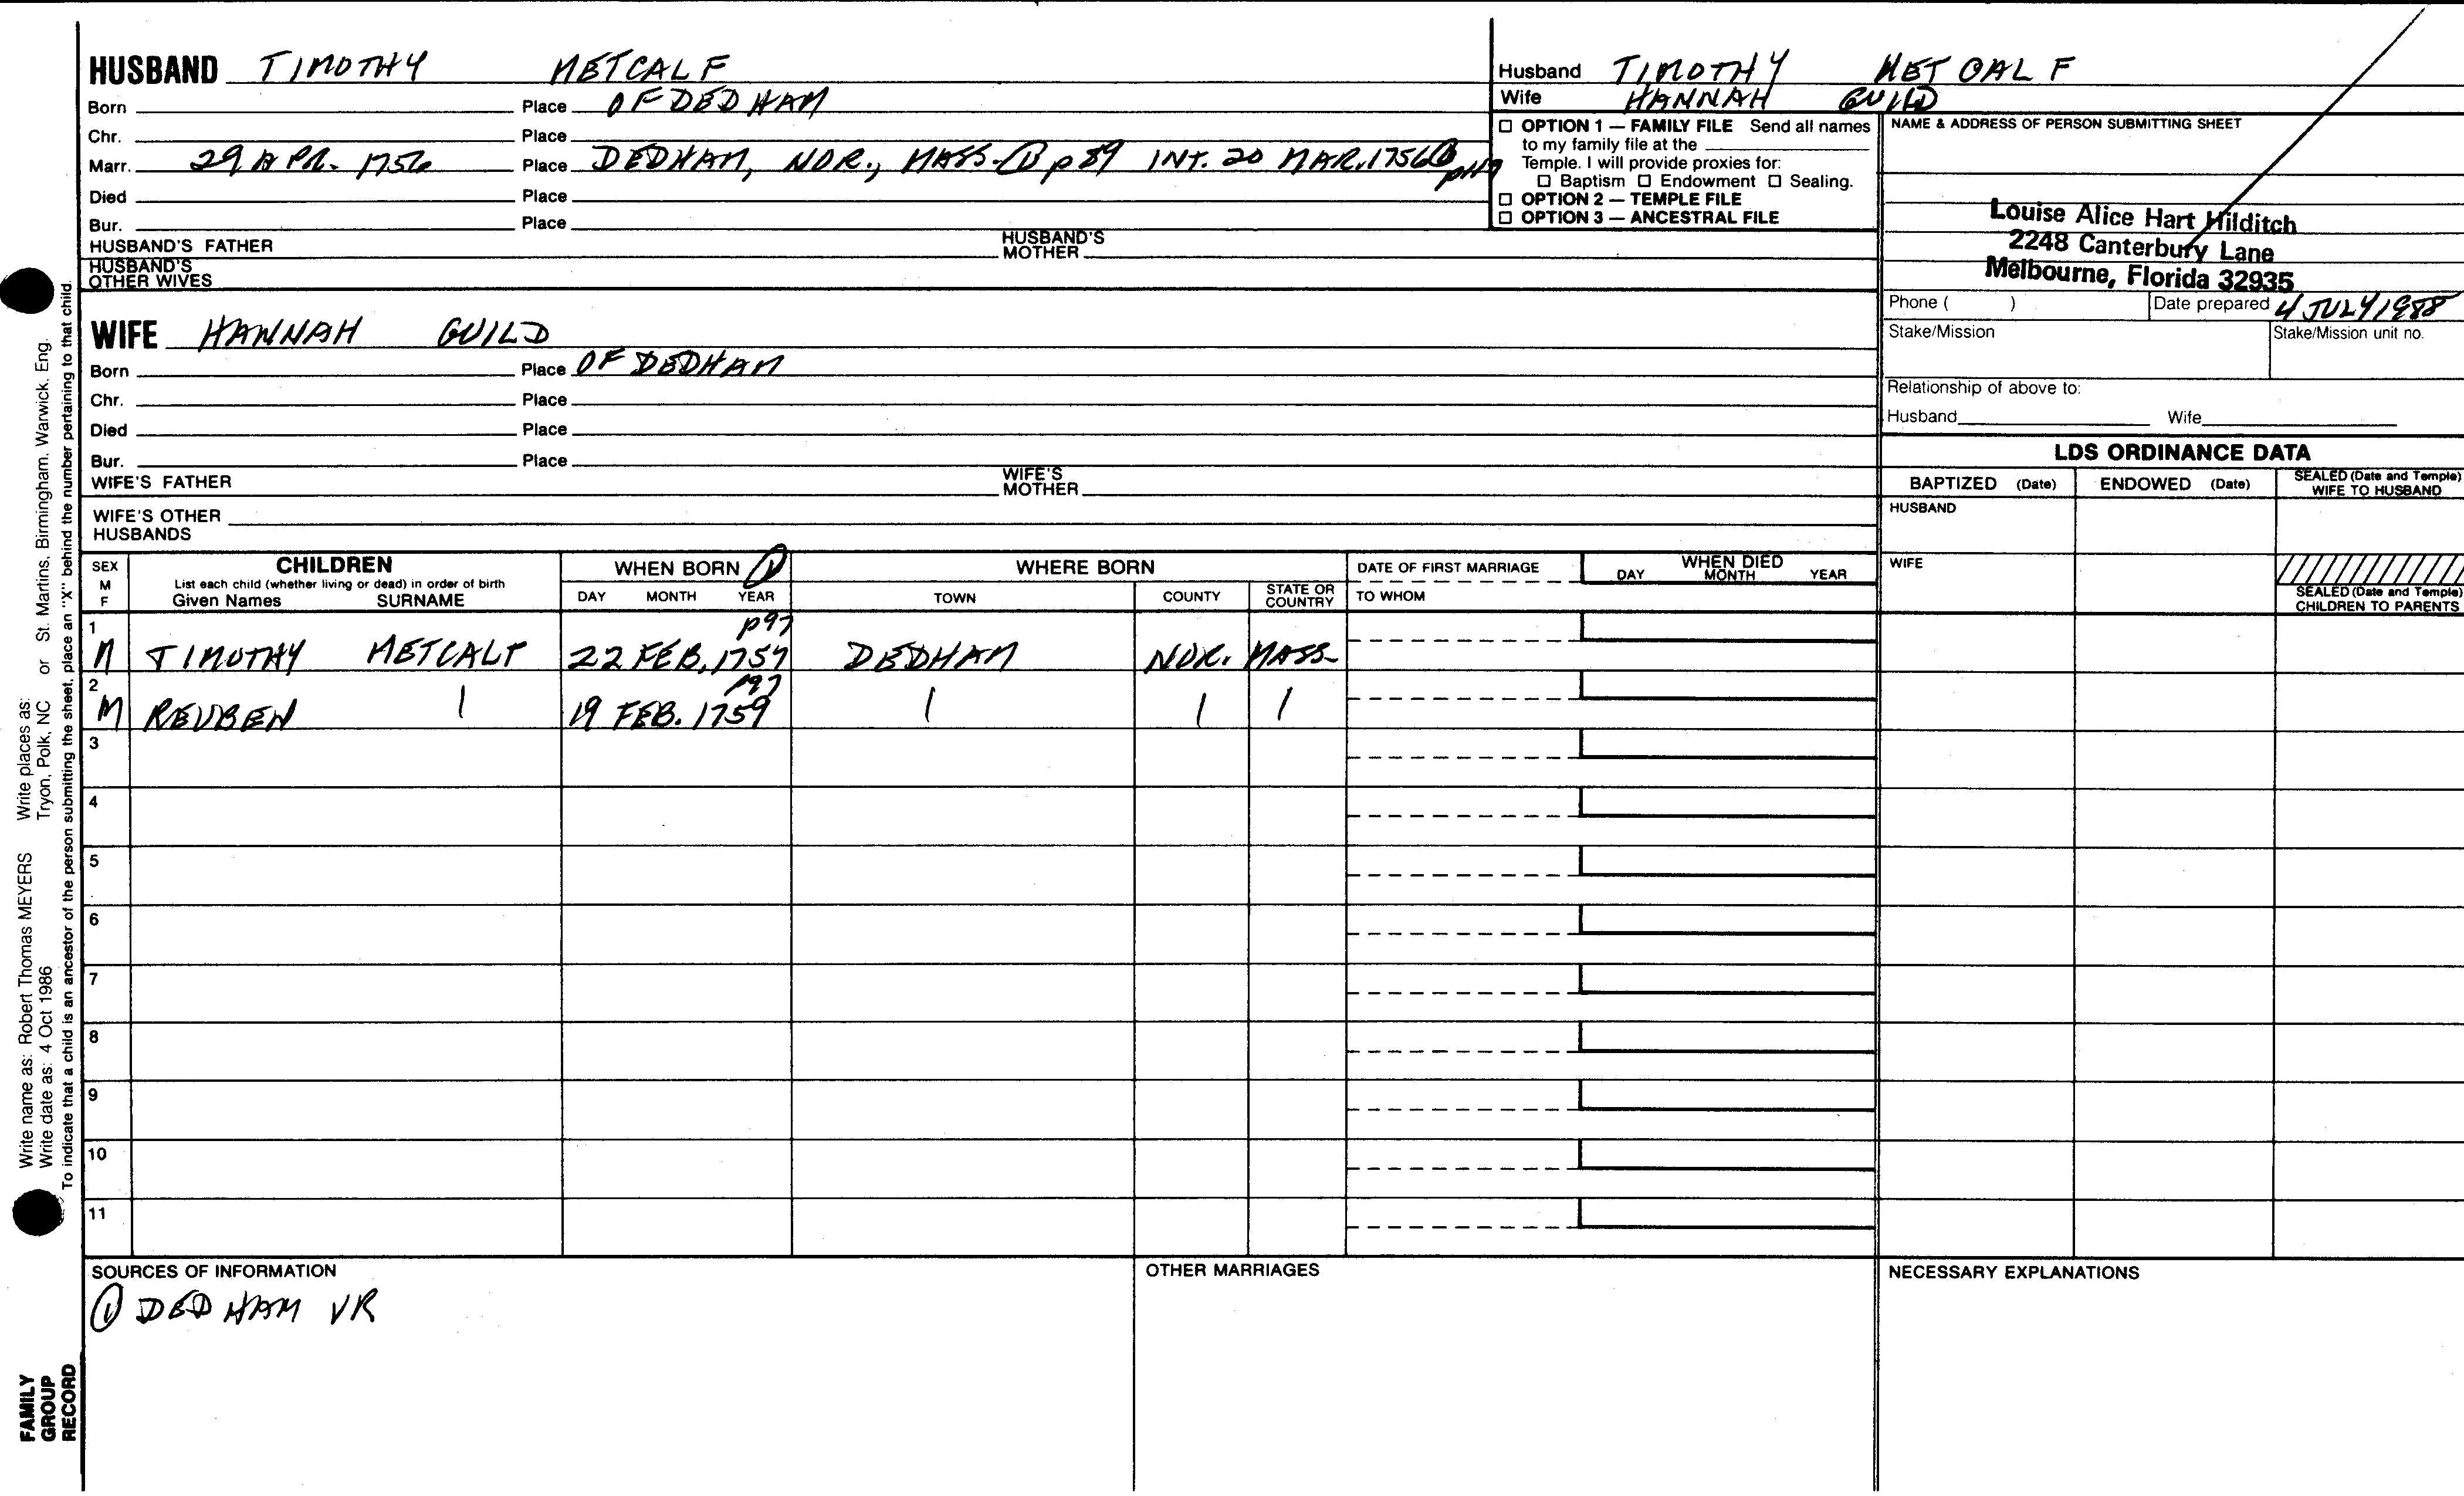 HUSBAND TIMOTHY METCALF
Born Place OF DEDHAM
Chr. Place
Marr. 29 APR. 1756 Place DEDHAM, NOR., MASS. ① p 89 INT. 20 MAR. 1756 ①
Died Place
Bur. Place
HUSBAND'S FATHER HUSBAND'S MOTHER
HUSBAND'S OTHER WIVES
WIFE HANNAH GUILD
Born Place OF DEDHAM
Chr. Place
Died Place
Bur. Place
WIFE'S FATHER WIFE'S MOTHER
WIFE'S OTHER HUSBANDS
Husband TIMOTHY METCALF
Wife HANNAH GUILD
☐ OPTION 1 — FAMILY FILE Send all names
to my family file at the
Temple. I will provide proxies for:
☐ Baptism ☐ Endowment ☐ Sealing.
☐ OPTION 2 — TEMPLE FILE
☐ OPTION 3 — ANCESTRAL FILE
NAME & ADDRESS OF PERSON SUBMITTING SHEET
Louise Alice Hart Hilditch
2248 Canterbury Lane
Melbourne, Florida 32935
Phone ( ) Date prepared 4 JULY 1988
Stake/Mission Stake/Mission unit no.
Relationship of above to:
Husband Wife
LDS ORDINANCE DATA
BAPTIZED (Date) ENDOWED (Date) SEALED (Date and Temple) WIFE TO HUSBAND
HUSBAND
WIFE
SEALED (Date and Temple) CHILDREN TO PARENTS
SEX M F
CHILDREN
List each child (whether living or dead) in order of birth
Given Names SURNAME
WHEN BORN ①
DAY MONTH YEAR
WHERE BORN
TOWN COUNTY STATE OR COUNTRY
DATE OF FIRST MARRIAGE
TO WHOM
WHEN DIED
DAY MONTH YEAR
p97
1 M TIMOTHY METCALF 22 FEB. 1757 DEDHAM NOR. MASS.
p97
2 M REUBEN | 19 FEB. 1759 | | |
3
4
5
6
7
8
9
10
11
SOURCES OF INFORMATION
① DEDHAM VR
OTHER MARRIAGES
NECESSARY EXPLANATIONS
Write name as: Robert Thomas MEYERS Write places as:
Write date as: 4 Oct 1986 Tryon, Polk, NC or St. Martins, Birmingham, Warwick, Eng.
To indicate that a child is an ancestor of the person submitting the sheet, place an "X" behind the number pertaining to that child.
FAMILY
GROUP
RECORD